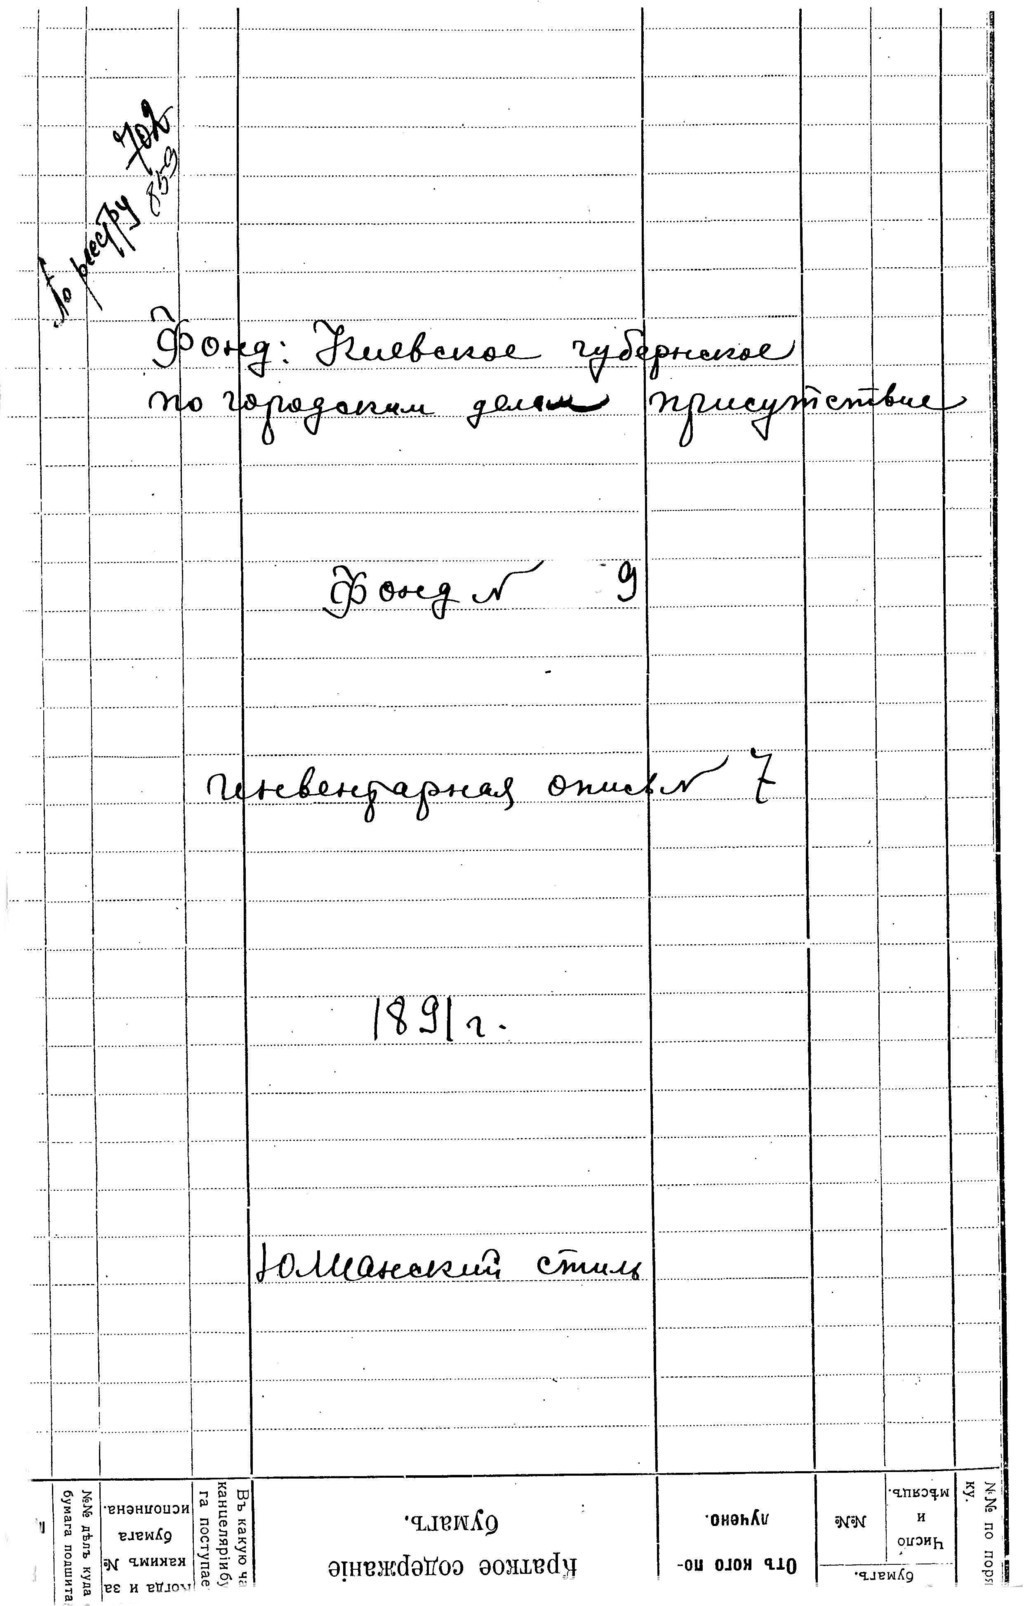 По реестру 702
859
Фонд: Киевское губернское
по городским делам присутствие
Фонд № 9
Инвентарная опись № 7
1891 г.
стиль
№№ по поря
ку.
бумагъ.
Число
и
мѣсяцъ.
№№
Отъ кого по-
лучено.
Краткое содержаніе
бумагъ.
Въ какую ча
канцеляріи бу
га поступае
Когда и за
какимъ №
бумага
исполнена.
№№ дѣлъ куда
бумага подшита